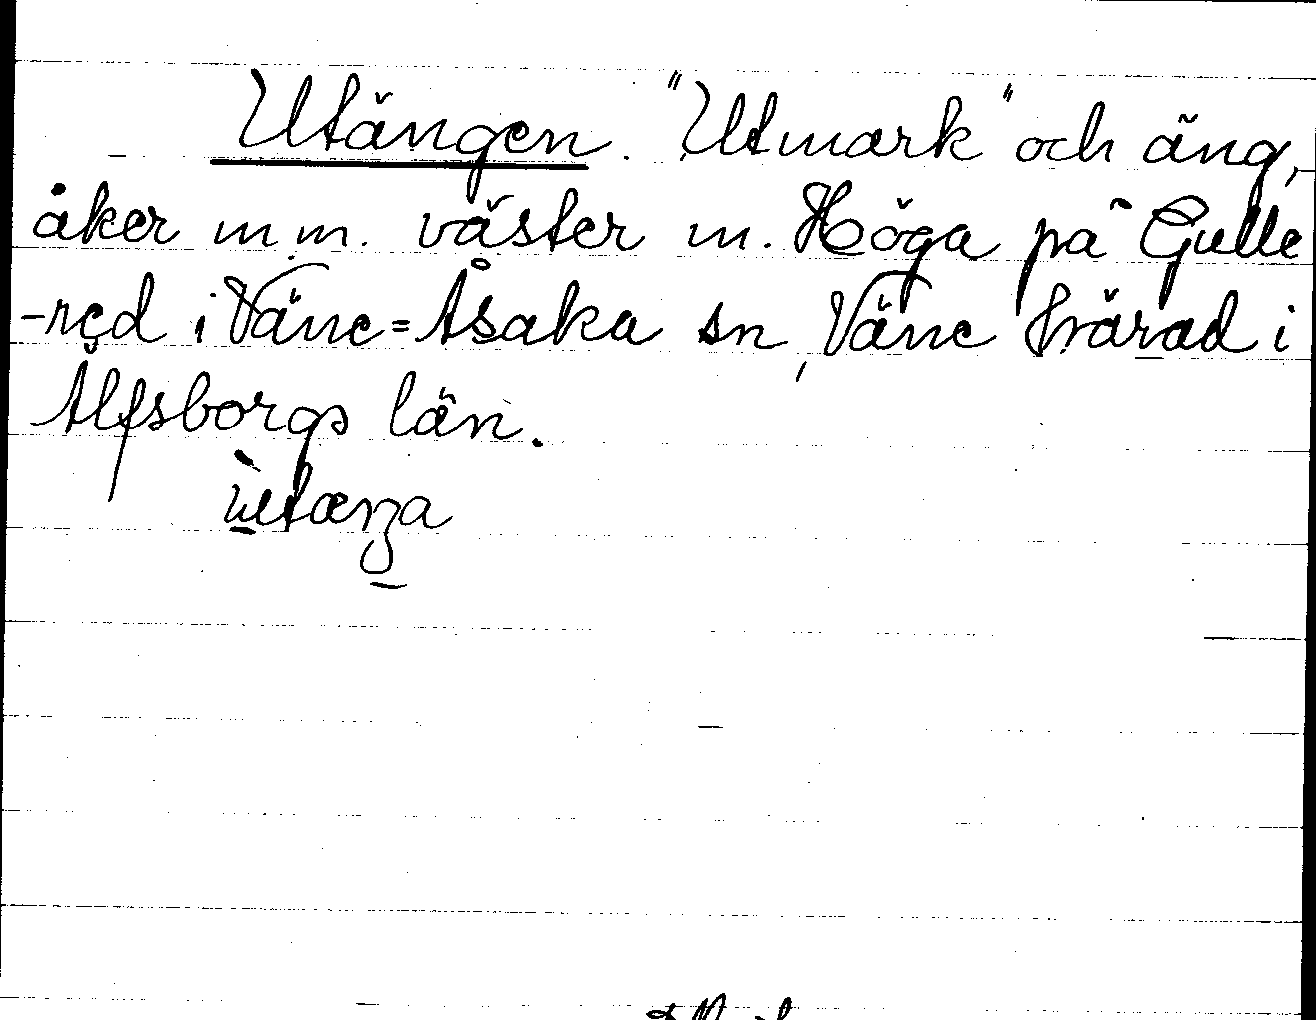 Utängen. "Utmark" och äng,
åker m.m. väster m. Höga på Gulle
-red i Väne=Åsaka sn, Väne härad i
Älfsborgs län.